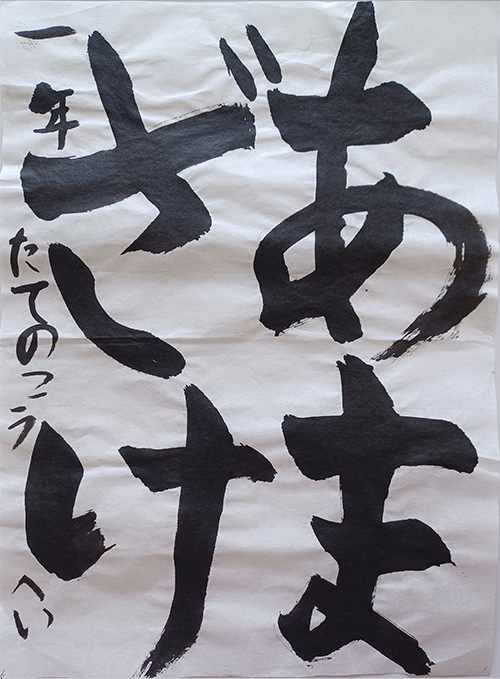 あま
ざけ
一年 たてのこうへい